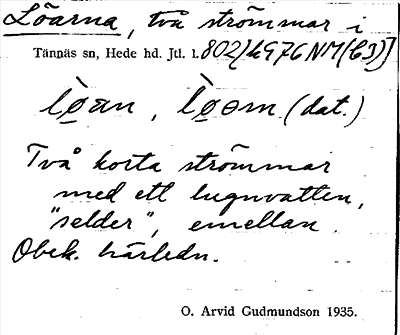 Löarna, två strömmar i
Tännäs sn, Hede hd. Jtl. l.
lø̀an, lø̀øm (dat.)
Två korta strömmar
med ett lugnvatten,
"selder", emellan.
Obek. härledn.
O. Arvid Gudmundson 1935.